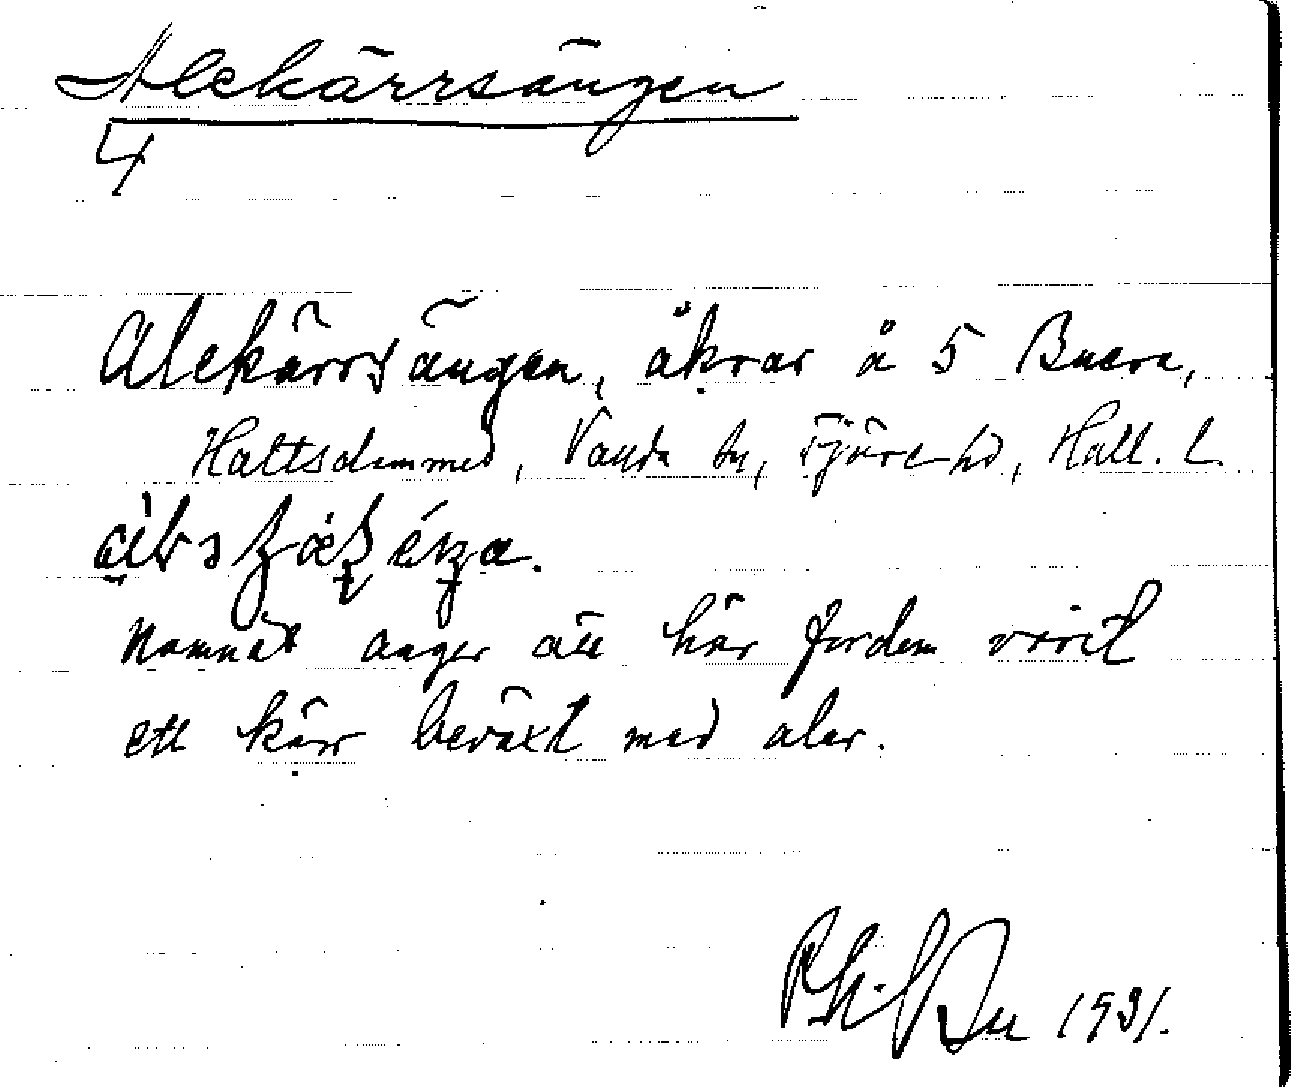 Alekärrsängen
4
Alekärrsängen, åkrar å 5 Buera,
Hattsdammed, Vanda by, Fjäre hd, Hall. L
Namnet anger att här fordom varit
ett kärr beväxt med alar.
1931.